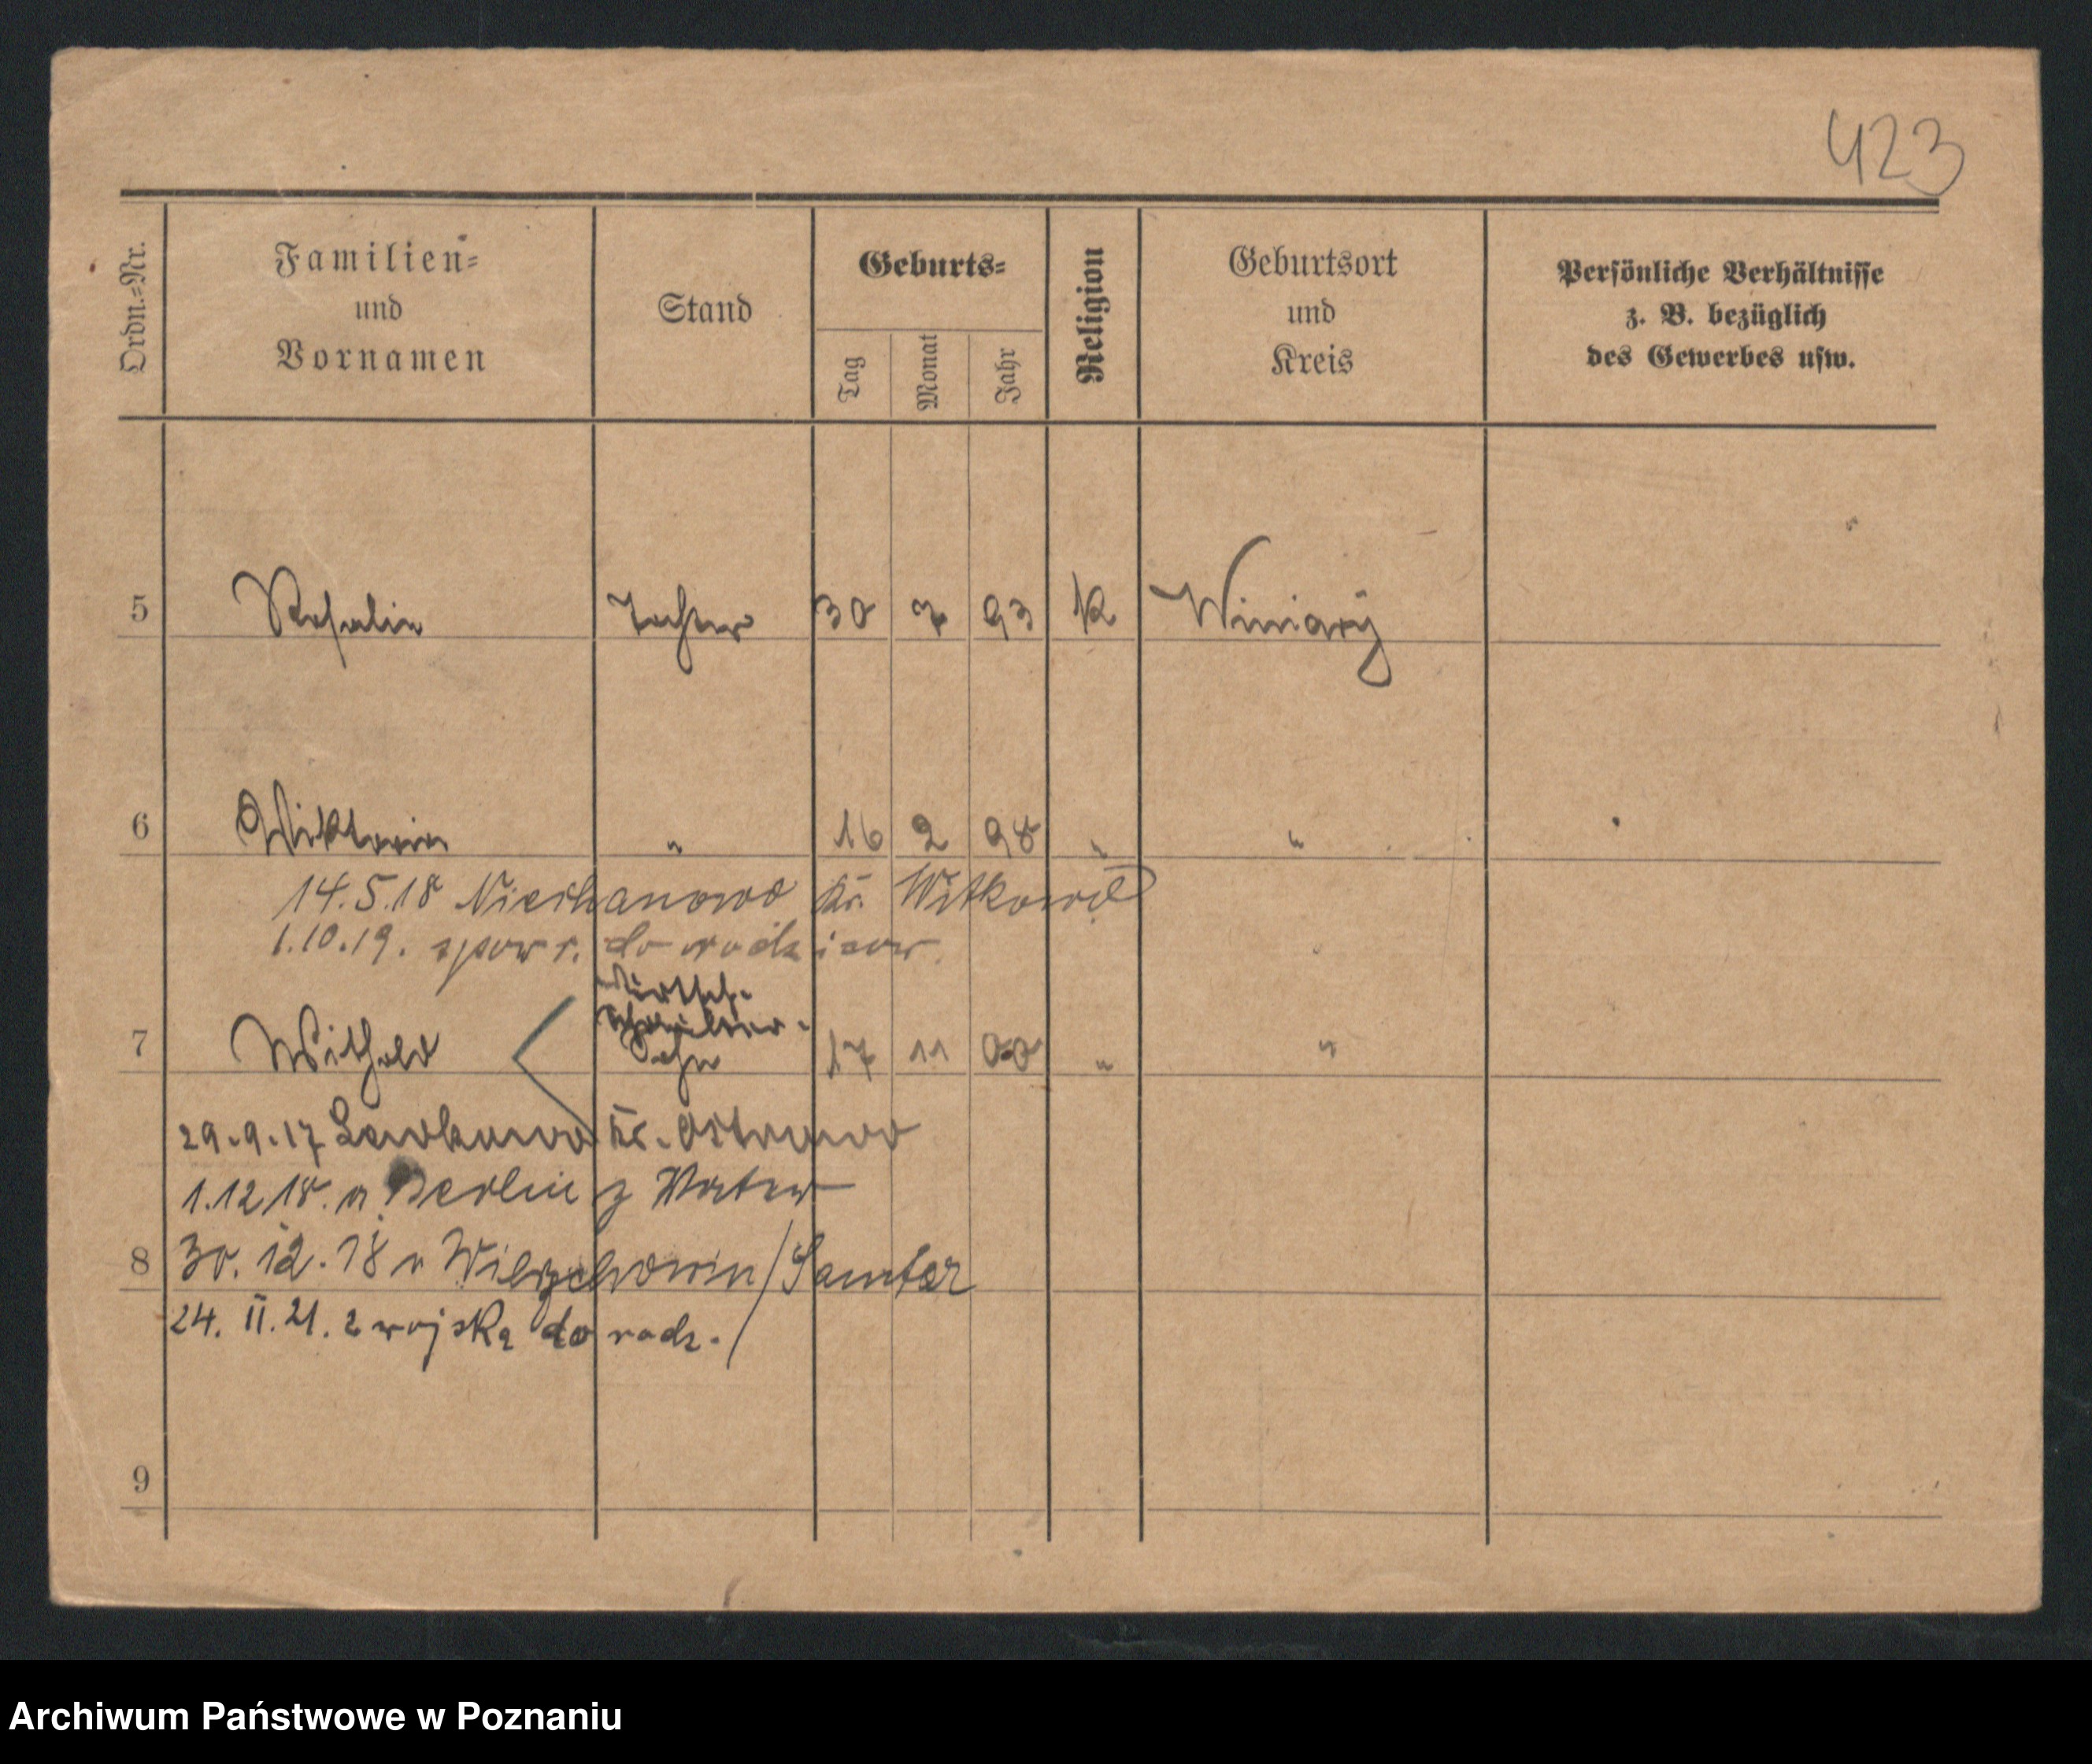 423
Ordn.-Nr.
Familien-
und
Vornamen
Stand
Geburts-
Tag
Monat
Jahr
Religion
Geburtsort
und
Kreis
Persönliche Verhältnisse
z. B. bezüglich
des Gewerbes usw.
5 Rosalie Tochter 30 7 93 K Winiary
6 Wiktoria " 16 2 98 " "
14.5.18 Niechanowo Kr. Witkowo
1.10.19. zpowr. do rodziców.
Wirtsch.
7 Withold Sohn 17 11 00 " "
29.9.17 Lewkowo Kr. Ostrowo
1.12.18. n Berlin z Vater
8 30.12.18 n / Samter
24. II. 21. z wojska do rodz.
9
Archiwum Państwowe w Poznaniu